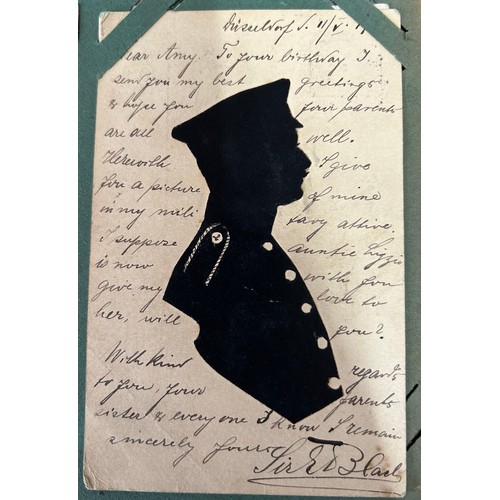 Düsseldorf d. 11/V.
Dear Amy. To your birthday I
send you my best greetings
& hope you your parents
are all well.
Herewith I give
you a picture of mine
in my mili tary attive.
I suppose auntie Lizzie
is now with you
give my love to
her, will you?
With kind regards
to you, your parents
sister & everyone I know I remain
sincerely yours